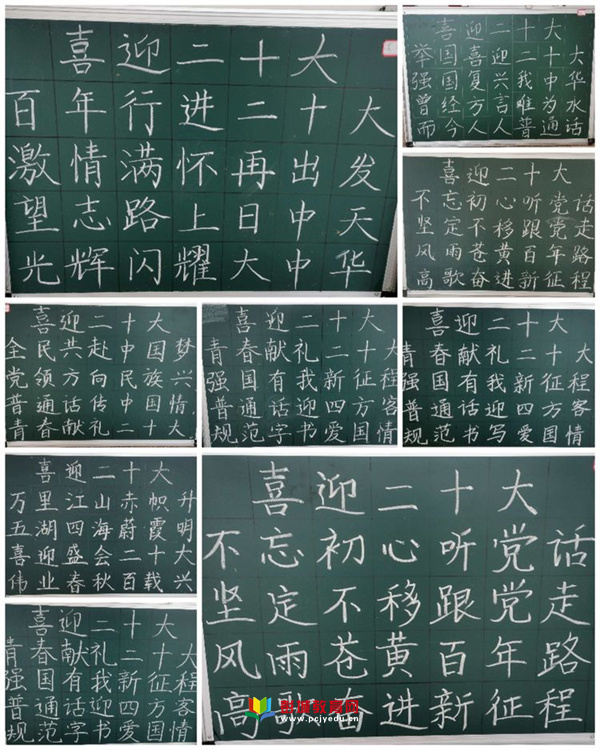 喜迎二十大
百年行进二十大
激情满怀再出发
望志路上日中天
光辉闪耀大中华
喜迎二十大
举国喜迎二十大
强国复兴我中华
曾经方言难为水
而今人人普通话
喜迎二十大
不忘初心听党话
坚定不移跟党走
风雨苍黄百年路
高歌奋进新征程
喜迎二十大
全民共赴中国梦
党领方向民族兴
普通话传中国情
青春献礼二十大
喜迎二十大
青春献礼二十大
强国有我新征程
普通话迎四方客
规范字书爱国情
喜迎二十大
青春献礼二十大
强国有我新征程
普通话迎四方客
规范书写爱国情
喜迎二十大
万里江山赤帜升
五湖四海蔚霞明
喜迎盛会二十大
伟业春秋百载兴
喜迎二十大
不忘初心听党话
坚定不移跟党走
风雨苍黄百年路
高歌奋进新征程
喜迎二十大
青春献礼二十大
强国有我新征程
普通话迎四方客
规范字书爱国情
www.pcjyedu.cn